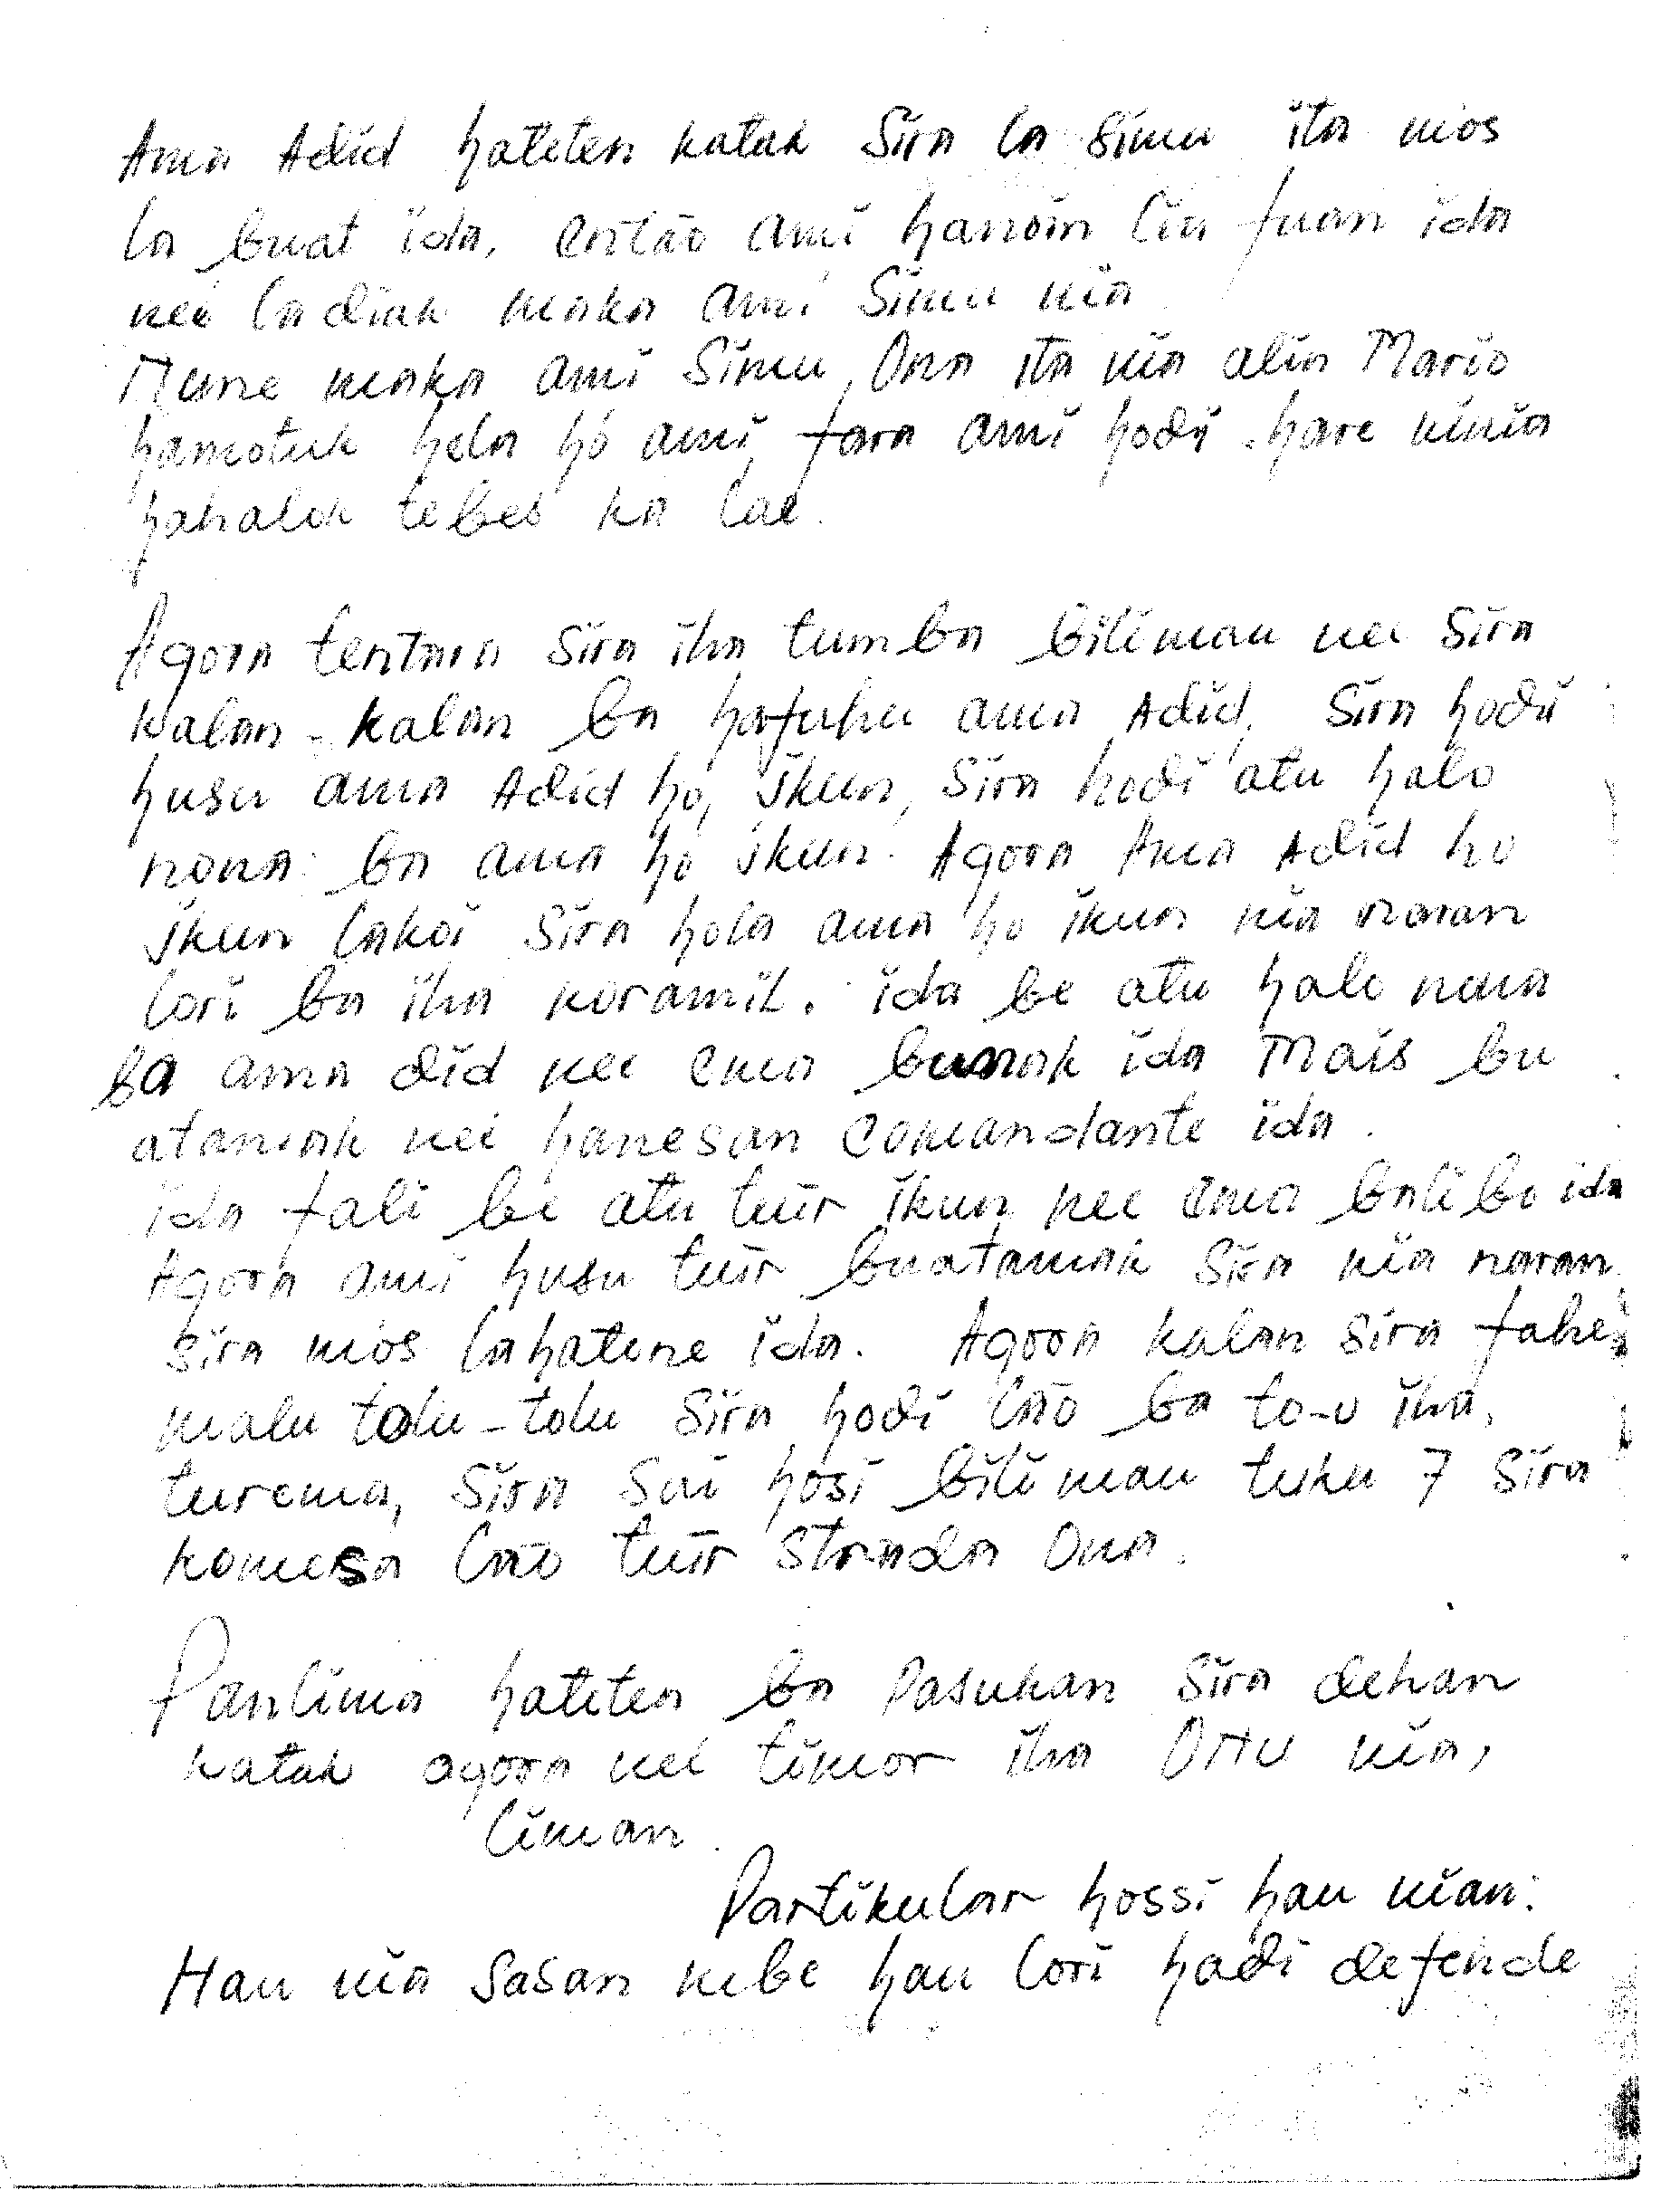 Ama Adid hateten katak Sira la simu ita mos
la buat ida, então ami hanoin lia fuan ida
nee la diak maka ami simu nia
Nune maka ami simu, Ona ita nia alin Mario
hamotuk hela hó ami fara ami hodi hare ninia
hahalok tebes ka lae.
Agora tentara sira iha tumba bilimau nee sira
kalan-kalan ba hafuhu ama Adid, sira hodi
husu ama Adid ho, ikun, sira hodi atu halo
nona ba ama ho ikun. Agora Ama Adid ho
ikun lakoi sira hola ama ho ikun nia naran
lori ba iha koramil. ida be atu halo nona
ba ama did nee ema bunak ida Mais bu
atamak nee hanesan comandante ida.
ida fali be atu tuir ikun nee ema balibo ida
Agora ami husu tuir buatamak sira nia naran
sira mos lahatene ida. Agora kalan sira fahe
malu tolu-tolu sira hodi lão ba to-o iha
turema, sira sai hosi bilimau tuku 7 sira
komesa lão tuir strada ona.
Panlima hateten ba Pasukan sira dehan
katak agora nee timor iha ONU nia,
liman.
Partikular hossi hau nian:
Hau nia sasan nebe hau lori hadi defende